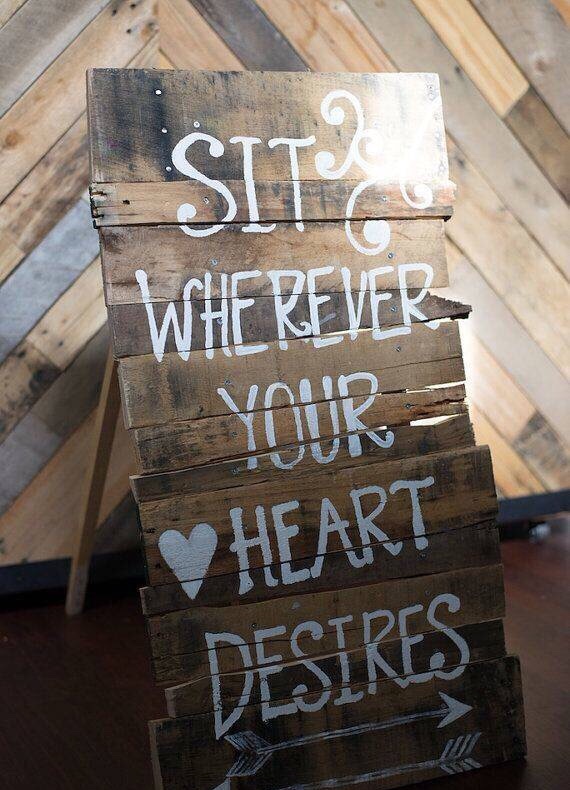 SIT
WHEREVER
YOUR
HEART
DESIRES